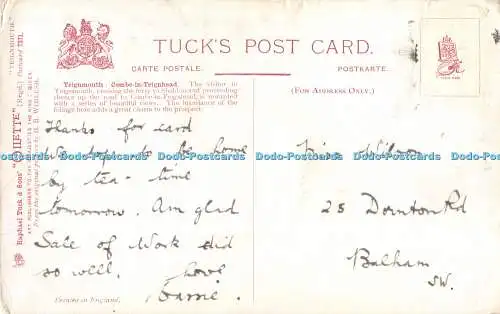 TUCK'S POST CARD.
CARTE POSTALE. POSTKARTE.
Teignmouth: Combe-in-Teignhead. The visitor to
Teignmouth, crossing the ferry to Shaldon and proceeding
along up the road to Combe-in-Teignhead, is rewarded
with a series of beautiful views. The luxuriance of the
foliage here adds a great charm to the prospect.
(FOR ADDRESS ONLY.)
Thanks for card
to be home
by tea-time
tomorrow. Am glad
Sale of Work did
so well. Love
Carrie.
Miss Wilson
25 Dornton Rd
Balham
SW.
Printed in England.
Raphael Tuck & Sons' "OILETTE" [Regd.] Postcard 7371.
"TEIGNMOUTH"
ART PUBLISHERS TO THEIR MAJESTIES THE KING & QUEEN
Dodo-Postcards Dodo-Postcards Dodo-Postcards Dodo-Postcards Dodo-Postcards